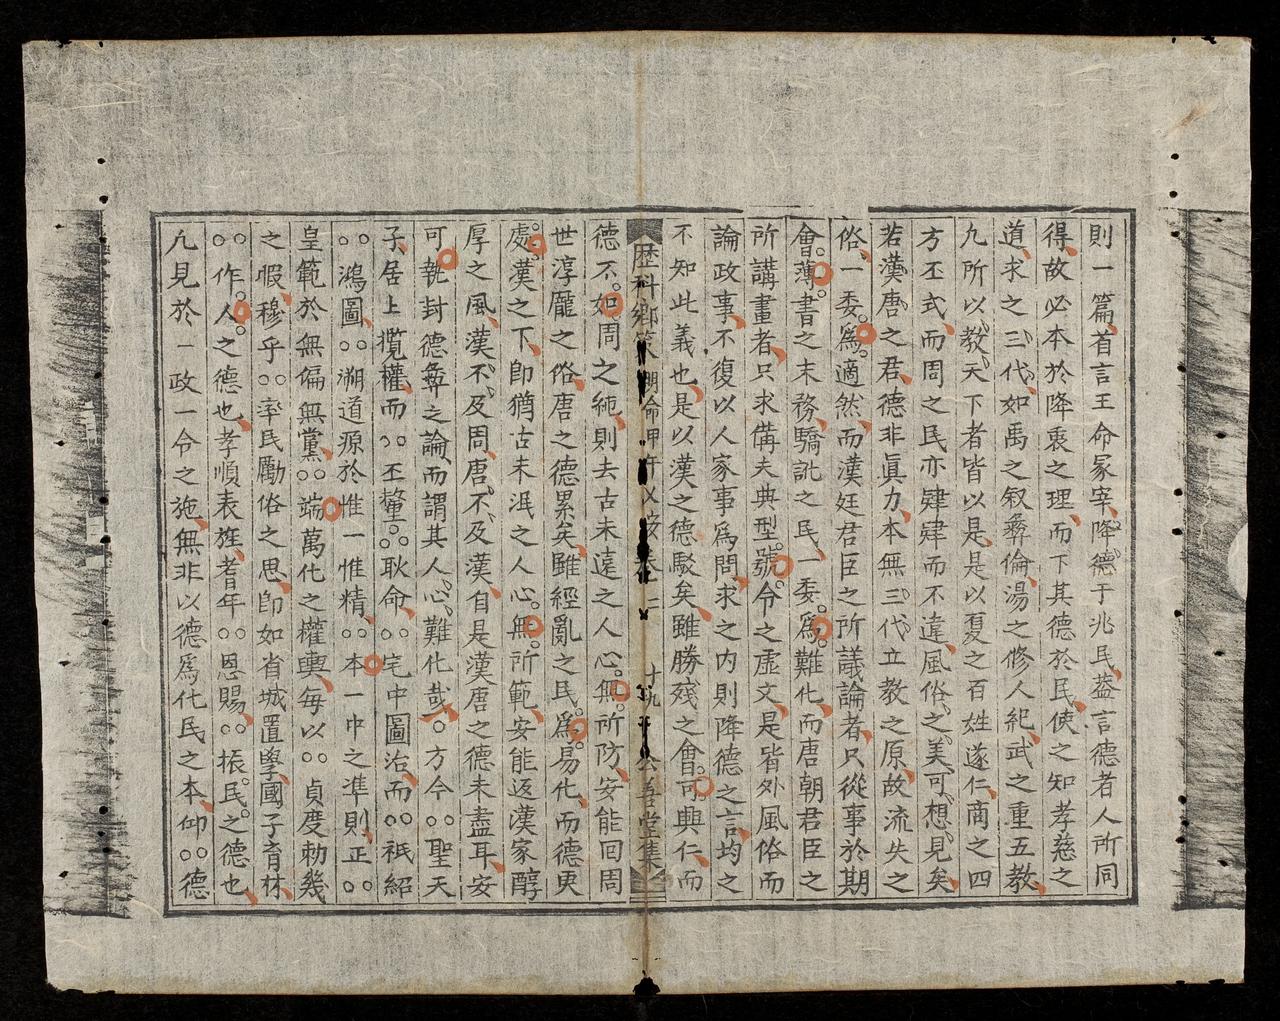 則一篇首言王命冢宰降德于兆民葢言德者人所同
得故必本於降衷之理而下其德於民使之知孝慈之
道求之三代如禹之叙彝倫湯之修人紀武之重五教
九所以教天下者皆以是是以夏之百姓遂仁商之四
方丕式而周之民亦肄肄而不違風俗之美可想見矣
若漢唐之君德非眞力本無三代立教之原故流失之
俗一委爲適然而漢廷君臣之所議論者只從事於期
會薄書之末務驕訛之民一委爲難化而唐朝君臣之
所講畫者只求備夫典型號令之虛文是皆外風俗而
論政事不復以人家事爲問求之内則降德之言均之
不知此義也是以漢之德駁矣雖勝殘之會可興仁而
歷科鄉策 朝命甲午 卷之二 十九 公善堂集
德不如周之純則去古未遠之人心無所防安能囘周
世淳龐之俗唐之德累矣雖經亂之民爲易化而德更
處漢之下即猶古未泯之人心無所範安能返漢家醇
厚之風漢不及周唐不及漢自是漢唐之德未盡耳安
可執封德彝之論而謂其人心難化哉○方今○○聖天
子居上攬權而○○丕釐○○耿命○○宅中圖治而○○祇紹
○○鴻圖○○溯道源於惟一惟精○○本一中之準則正○○
皇範於無偏無黨○○端萬化之權輿每以○○貞度勅幾
之暇穆乎○○率民勵俗之思卽如省城置學國子育材
○○作人之德也孝順表旌耆年○○恩賜○○振民之德也
凡見於一政一令之施無非以德爲化民之本仰○○德